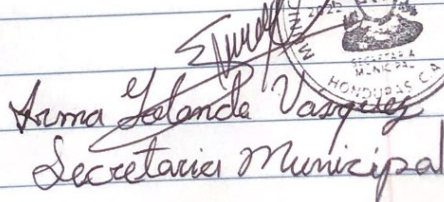 SECRETARIA
MUNICIPAL
HONDURAS C.A
Yolanda Vasquez
Secretaria Municipal